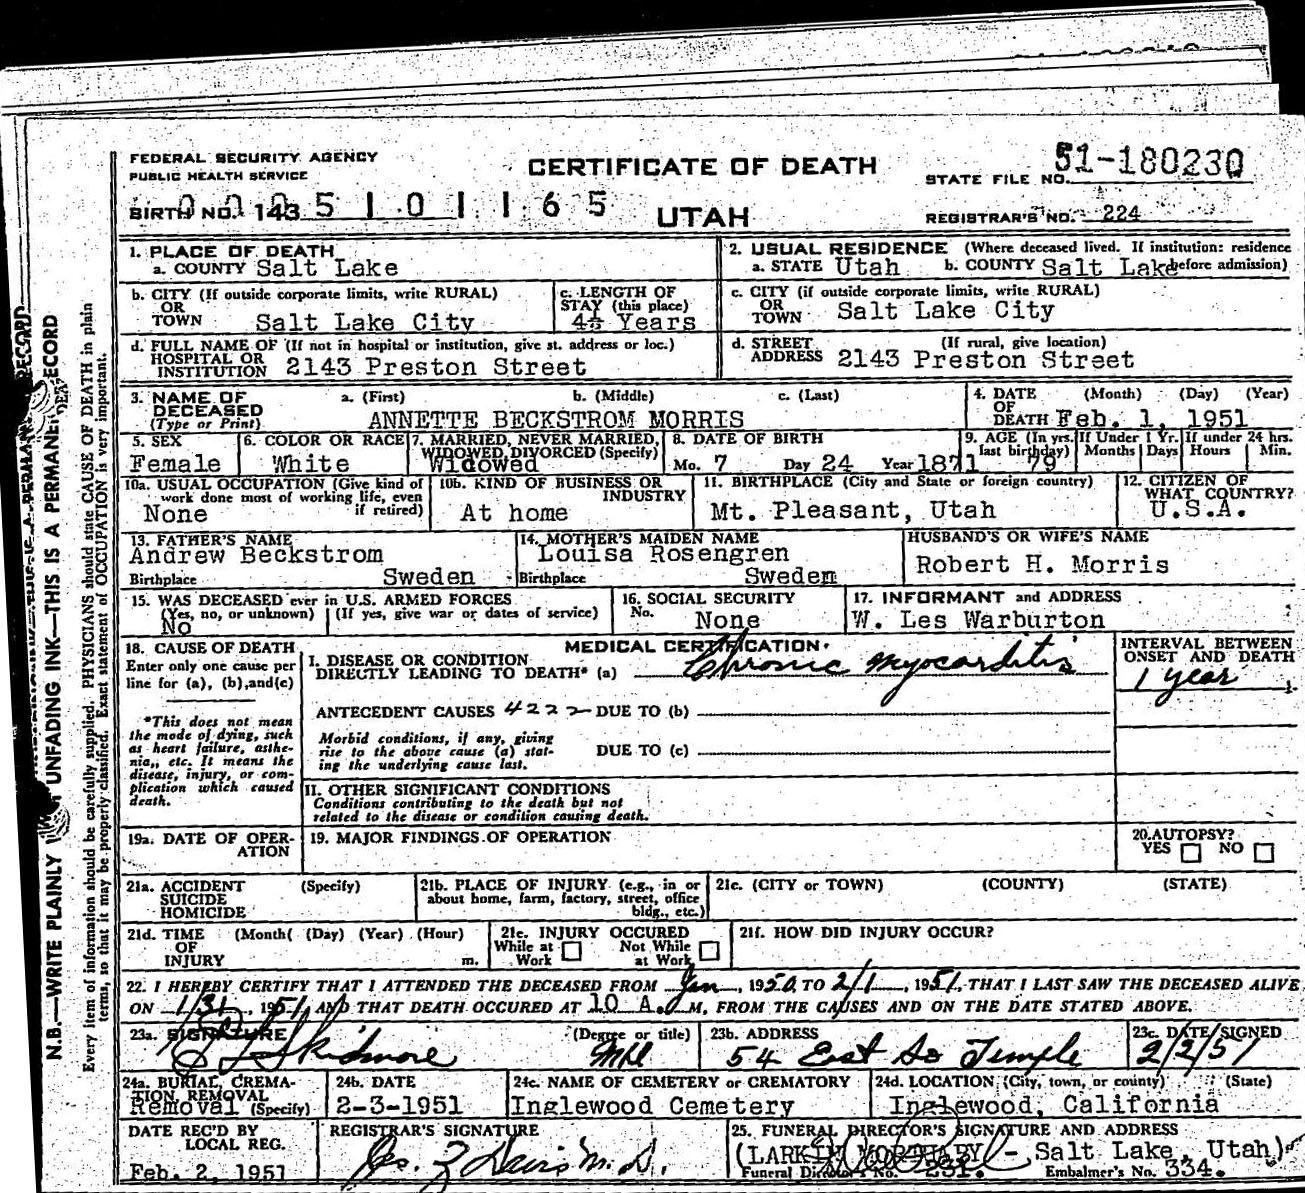 FEDERAL SECURITY AGENCY
PUBLIC HEALTH SERVICE
CERTIFICATE OF DEATH
STATE FILE NO. 51-180230
BIRTH NO. 143 0005101165
UTAH
REGISTRAR'S NO. 224
1. PLACE OF DEATH
a. COUNTY Salt Lake
2. USUAL RESIDENCE (Where deceased lived. If institution: residence before admission)
a. STATE Utah b. COUNTY Salt Lake
b. CITY (If outside corporate limits, write RURAL)
OR
TOWN Salt Lake City
c. LENGTH OF
STAY (this place)
Years
c. CITY (if outside corporate limits, write RURAL)
OR
TOWN Salt Lake City
d. FULL NAME OF (If not in hospital or institution, give st. address or loc.)
HOSPITAL OR
INSTITUTION 2143 Preston Street
d. STREET (If rural, give location)
ADDRESS 2143 Preston Street
3. NAME OF a. (First) b. (Middle) c. (Last)
DECEASED
(Type or Print) ANNETTE BECKSTROM MORRIS
4. DATE (Month) (Day) (Year)
OF
DEATH Feb. 1, 1951
5. SEX
Female
6. COLOR OR RACE
White
7. MARRIED, NEVER MARRIED,
WIDOWED, DIVORCED (Specify)
Widowed
8. DATE OF BIRTH
Mo. 7 Day 24 Year 1871
9. AGE (In yrs. last birthday) 79
If Under 1 Yr. Months Days
If under 24 hrs. Hours Min.
10a. USUAL OCCUPATION (Give kind of
work done most of working life, even
if retired)
None
10b. KIND OF BUSINESS OR
INDUSTRY
At home
11. BIRTHPLACE (City and State or foreign country)
Mt. Pleasant, Utah
12. CITIZEN OF
WHAT COUNTRY?
U.S.A.
13. FATHER'S NAME
Andrew Beckstrom
Birthplace Sweden
14. MOTHER'S MAIDEN NAME
Louisa Rosengren
Birthplace Sweden
HUSBAND'S OR WIFE'S NAME
Robert H. Morris
15. WAS DECEASED ever in U.S. ARMED FORCES
(Yes, no, or unknown) (If yes, give war or dates of service)
No
16. SOCIAL SECURITY
No. None
17. INFORMANT and ADDRESS
W. Les Warburton
18. CAUSE OF DEATH
Enter only one cause per
line for (a), (b), and (c)
*This does not mean
the mode of dying, such
as heart failure, asthe-
nia, etc. It means the
disease, injury, or com-
plication which caused
death.
MEDICAL CERTIFICATION
I. DISEASE OR CONDITION
DIRECTLY LEADING TO DEATH* (a) Chronic myocarditis
ANTECEDENT CAUSES 4222 DUE TO (b)
Morbid conditions, if any, giving
rise to the above cause (a) stat-
ing the underlying cause last.
DUE TO (c)
INTERVAL BETWEEN
ONSET AND DEATH
1 year
II. OTHER SIGNIFICANT CONDITIONS
Conditions contributing to the death but not
related to the disease or condition causing death.
19a. DATE OF OPER-
ATION
19. MAJOR FINDINGS OF OPERATION
20. AUTOPSY?
YES NO
21a. ACCIDENT (Specify)
SUICIDE
HOMICIDE
21b. PLACE OF INJURY (e.g., in or
about home, farm, factory, street, office
bldg., etc.)
21c. (CITY or TOWN) (COUNTY) (STATE)
21d. TIME (Month( (Day) (Year) (Hour)
OF
INJURY m.
21e. INJURY OCCURED
While at Work Not While at Work
21f. HOW DID INJURY OCCUR?
22. I HEREBY CERTIFY THAT I ATTENDED THE DECEASED FROM Jan, 1950, TO 2/1, 1951, THAT I LAST SAW THE DECEASED ALIVE
ON 1/31, 1951 AND THAT DEATH OCCURED AT 10 A. M, FROM THE CAUSES AND ON THE DATE STATED ABOVE.
23a. SIGNATURE (Degree or title)
Skidmore MD
23b. ADDRESS
54 East So Temple
23c. DATE SIGNED
2/2/51
24a. BURIAL, CREMA-
TION, REMOVAL
Removal (Specify)
24b. DATE
2-3-1951
24c. NAME OF CEMETERY or CREMATORY
Inglewood Cemetery
24d. LOCATION (City, town, or county) (State)
Inglewood, California
DATE REC'D BY
LOCAL REG.
Feb. 2, 1951
REGISTRAR'S SIGNATURE
Davis M.D.
25. FUNERAL DIRECTOR'S SIGNATURE AND ADDRESS
(LARKIN MORTUARY - Salt Lake, Utah)
Funeral Director's No. 231. Embalmer's No. 334.
N.B.—WRITE PLAINLY UNFADING INK—THIS IS A PERMANENT RECORD
Every item of information should be carefully supplied. PHYSICIANS should state CAUSE OF DEATH in plain
terms, so that it may be properly classified. Exact statement of OCCUPATION is very important.